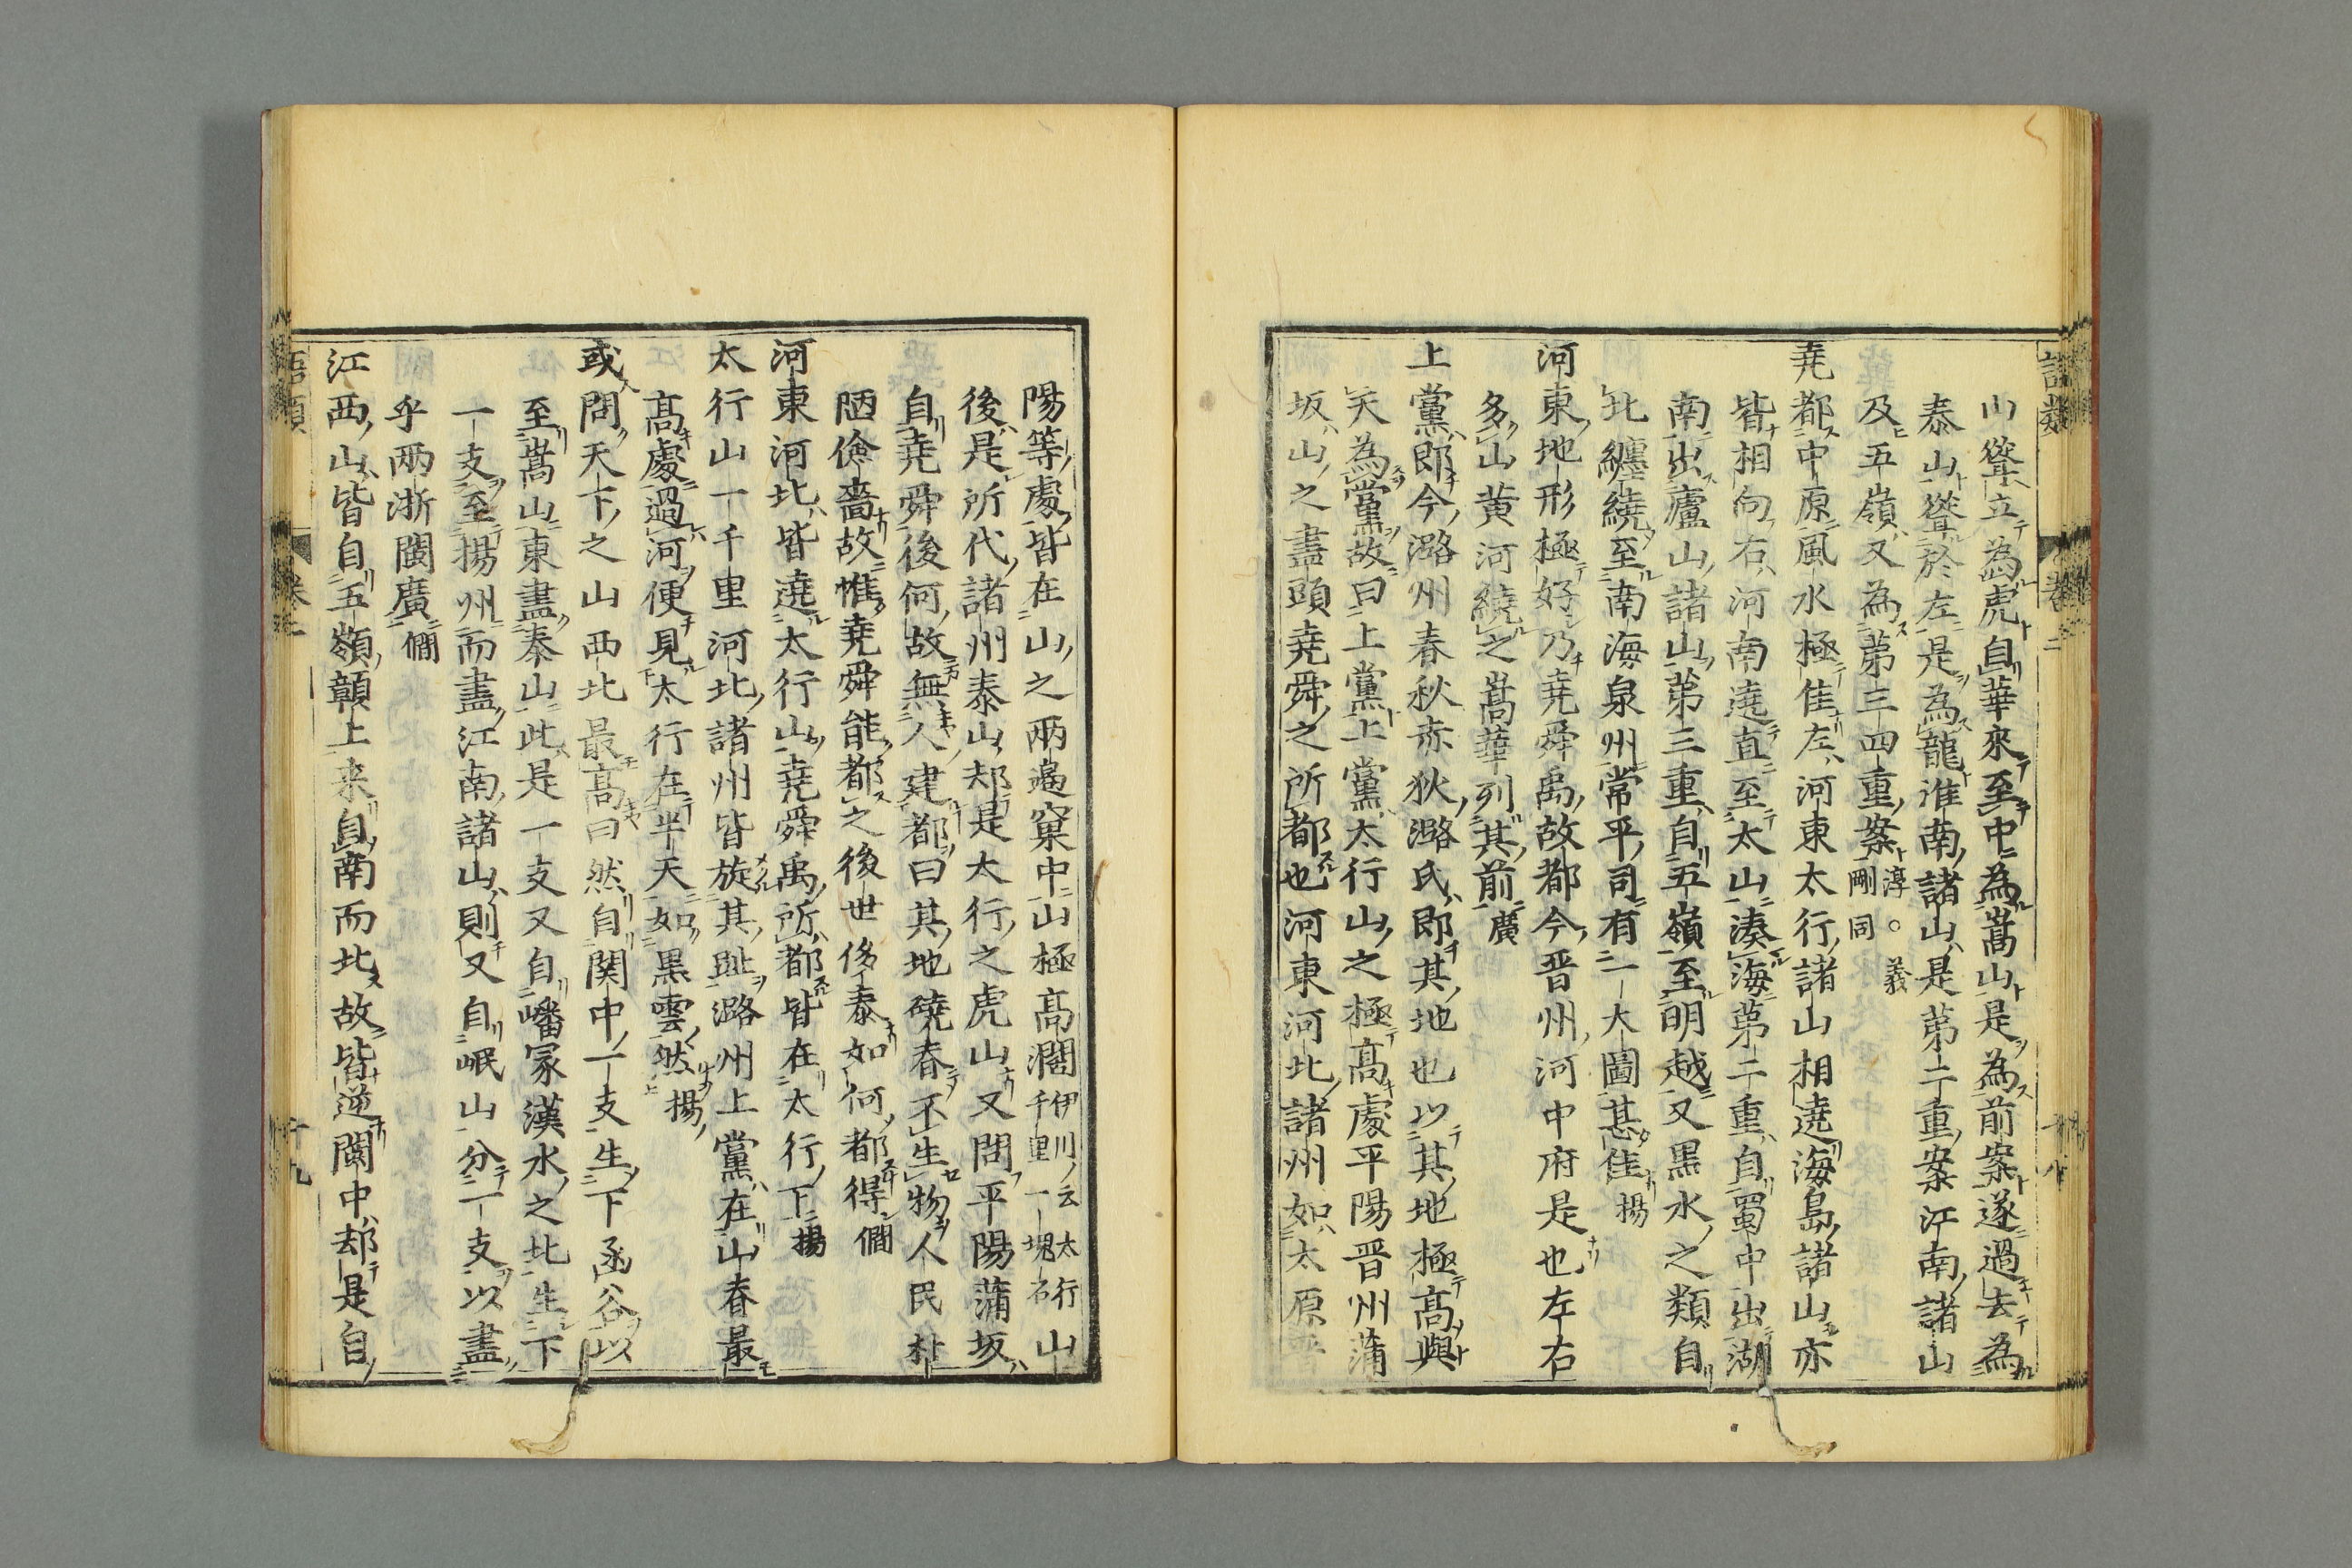 語類 卷二 十八
山聳立為虎自華來至中為嵩山是為前案遂過去為
泰山聳於左是為龍淮南諸山是第二重案江南諸山
及五嶺又為第三四重案淳。義剛同
堯都中原風水極佳左河東太行諸山相遶海島諸山亦
皆相向右河南遶直至太山湊海第二重自蜀中出湖
南出廬山諸山第三重自五嶺至明越又黒水之類自
北纏繞至南海泉州常平司有一大圖甚佳揚
河東地形極好乃堯舜禹故都今晋州河中府是也左右
多山黄河繞之嵩華列其前廣
上黨即今潞州春秋赤狄潞氏即其地也以其地極髙與
天為黨故曰上黨上黨太行山之極髙處平陽晋州蒲
坂山之盡頭堯舜之所都也河東河北諸州如太原晋
陽等處皆在山之兩邉窠中山極髙濶伊川云太行山千里一塊石山
後是所代諸州泰山却是太行之虎山又問平陽蒲坂
自堯舜後何故無人建都曰其地磽春不生物人民朴
陋儉嗇故惟堯舜能都之後世侈泰如何都得僩
河東河北皆遶太行山堯舜禹所都皆在太行下揚
太行山一千里河北諸州皆旋其趾潞州上黨在山春最
髙處過河便見太行在半天如黒雲然揚
或問天下之山西北最髙曰然自関中一支生下函谷以
至嵩山東盡泰山此是一支又自嶓冢漢水之北生下
一支至揚州而盡江南諸山則又自岷山分一支以盡
乎兩浙閩廣僩
江西山皆自五嶺贑上来自南而北故皆逆閩中却是自
語類 卷二 十九